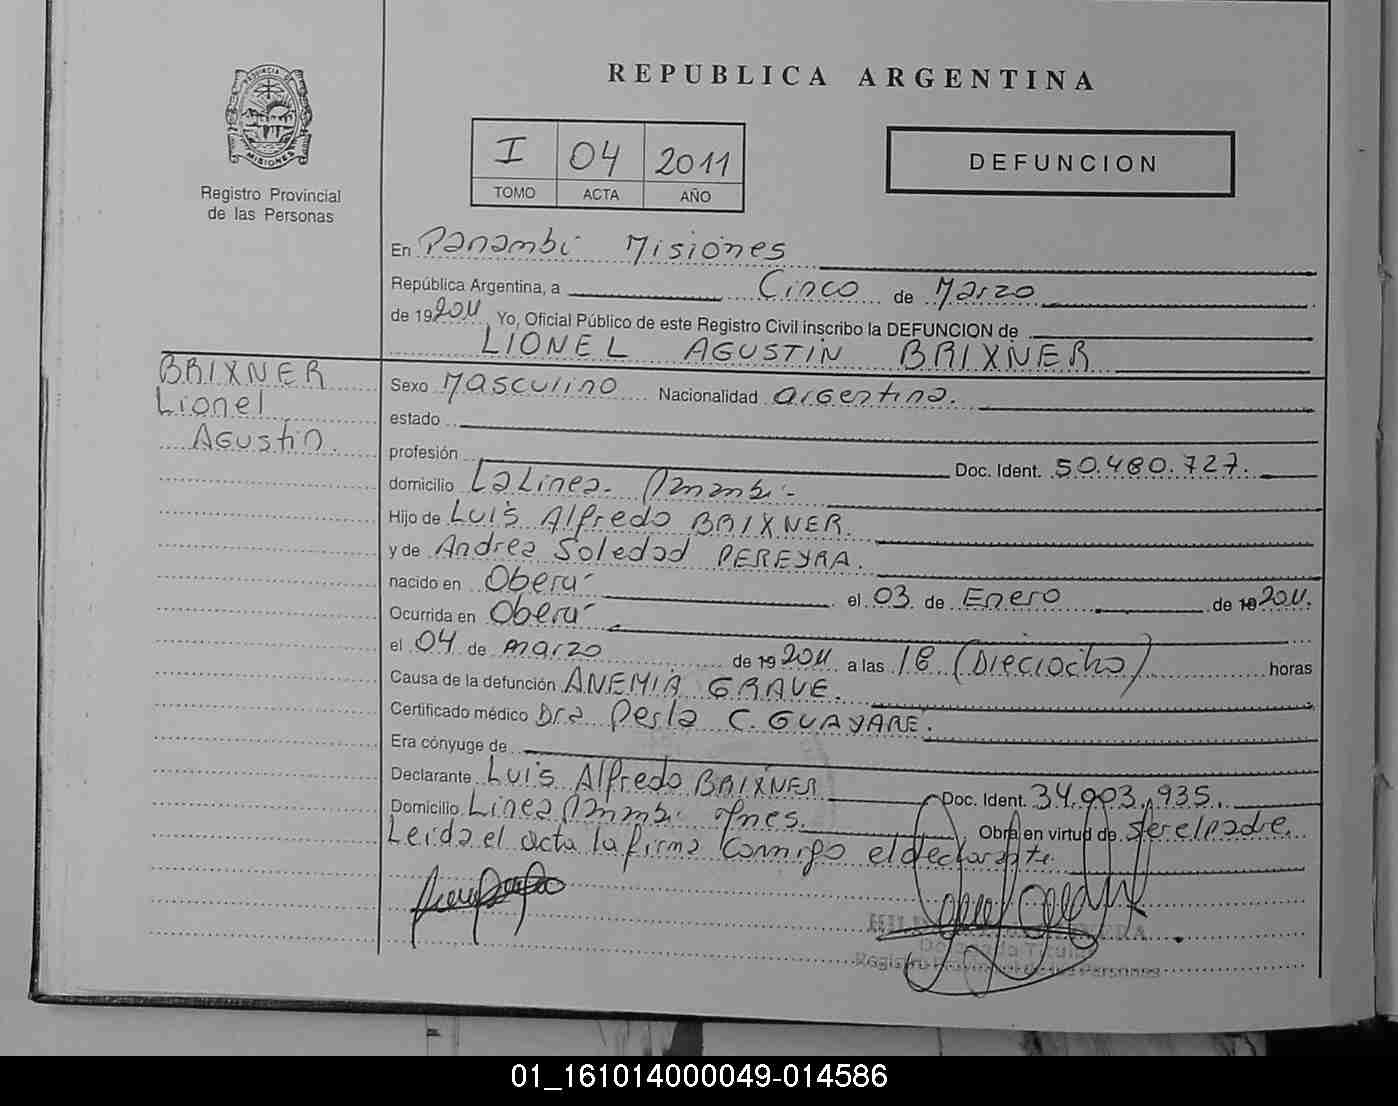 REPUBLICA ARGENTINA
PROVINCIA DE MISIONES
Registro Provincial
de las Personas
I 04 2011
TOMO ACTA AÑO
DEFUNCION
En Panambí Misiones
República Argentina, a Cinco de Marzo
de 19 2011 Yo, Oficial Público de este Registro Civil inscribo la DEFUNCION de
LIONEL AGUSTIN BRIXNER
BRIXNER
Lionel
Agustin.
Sexo Masculino Nacionalidad argentina.
estado
profesión Doc. Ident. 50.480.727.
domicilio La Linea. Panambi-
Hijo de Luis Alfredo BRIXNER.
y de Andrea Soledad PEREYRA.
nacido en Oberá el 03 de Enero de 19 2011.
Ocurrida en Oberá
el 04 de marzo de 19 2011 a las 18 (Dieciocho) horas
Causa de la defunción ANEMIA GRAVE.
Certificado médico Dra Perla C. GUAYARE.
Era cónyuge de
Declarante Luis Alfredo BRIXNER Doc. Ident. 34.003.935.
Domicilio Linea Panambi Mnes. Obra en virtud de ser el padre.
Leida el acta la firma conmigo el declarante.
Registro Provincial de las Personas
01_161014000049-014586